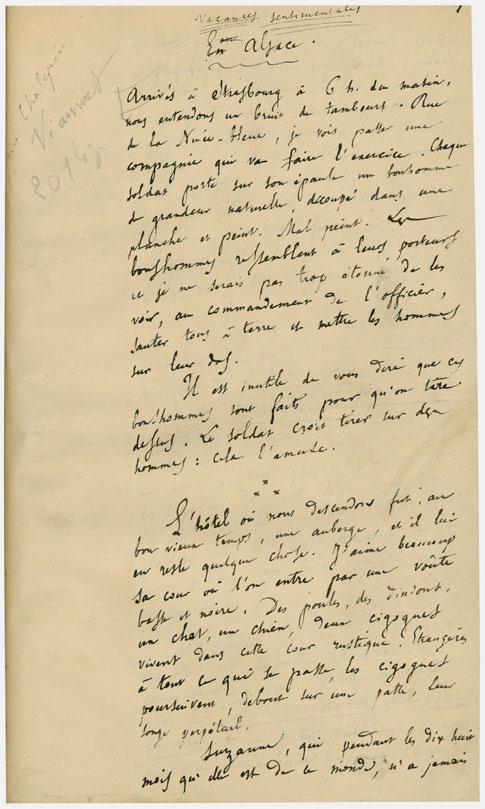 Vacances sentimentales
En Alsace.
1
Viannet
20 lig
Arrivés à Strasbourg à 6 h. du matin,
nous entendons un bruit de tambours. Rue
de la Nuée-bleue, je vois passer une
compagnie qui va faire l'exercice. Chaque
soldat porte sur son épaule un bonhomme
de grandeur naturelle, découpé dans une
planche et peint. Mal peint. Les
bonshommes ressemblent à leurs porteurs
et je ne serais pas trop étonné de les
voir, au commandement de l'officier,
sauter tous à terre et mettre les hommes
sur leur dos.
Il est inutile de vous dire que ces
bonshommes sont faits pour qu'on tire
dessus. Le soldat croit tirer sur des
hommes : cela l'amuse.
* * *
L'hôtel où nous descendons fut, au
bon vieux temps, une auberge, et il lui
en reste quelque chose. J'aime beaucoup
sa cour où l'on entre par une voûte
basse et noire. Des poules, des dindons,
un chat, un chien, deux cigognes
vivent dans cette cour rustique. Etrangères
à tout ce qui se passe, les cigognes
poursuivent, debout sur une patte, leur
songe perpétuel.
Suzanne, qui pendant les dix huit
mois qu'elle est de ce monde, n'a jamais